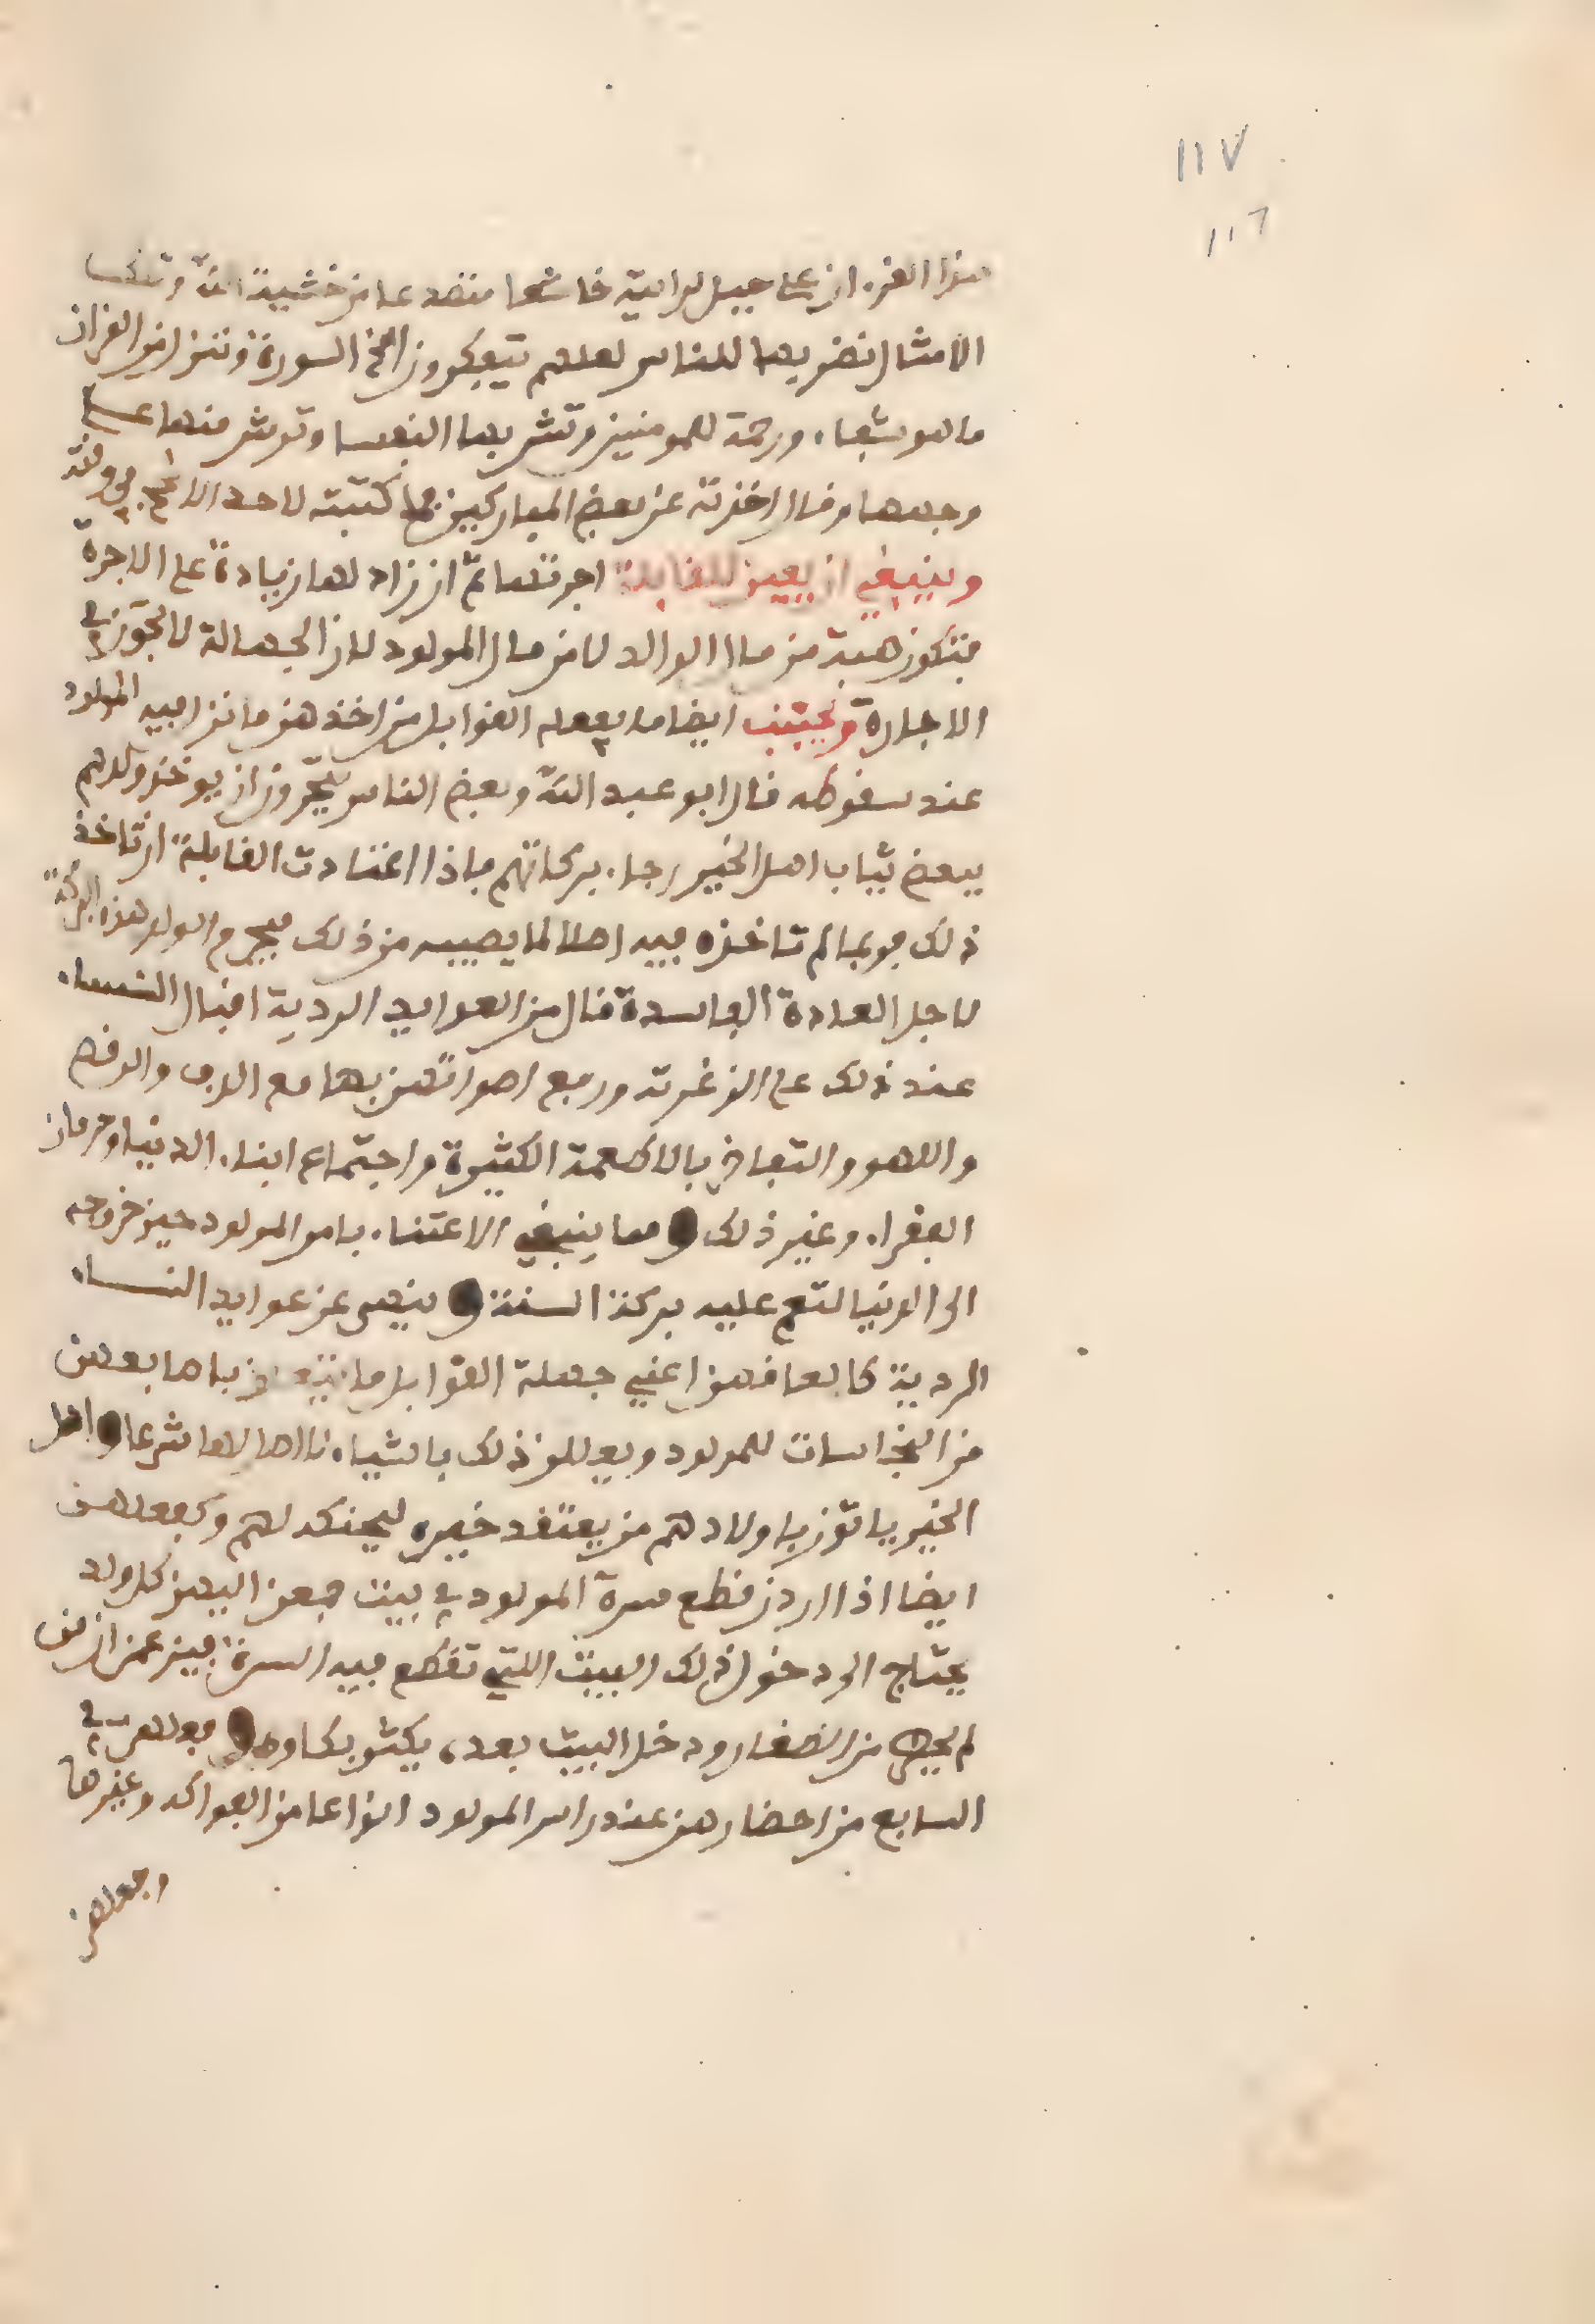 ١١٧
١١٦
هذا القرءان على جبل لرايته خاشعا متصدعا من خشية الله وتلك
الامثال نضربها للناس لعلهم يتفكرون الخ السورة وننزل من القران
ما هو شفاء ورحمة للمومنين وتشربها النفسا وترش منها على
وجهها وقال اخذته عن بعض المباركين فما كتبته لاحد الا نجح في وقته
وينبغي ان يعين للقابلة اجرتها ثم ان زاد لها زيادة على الاجرة
فتكون هبة من مال الوالد لا من مال المولود لان الجهالة لا تجوز في
الاجارة وتجتنب ايضا ما يفعله القوابل من اخذهن ما نزل فيه المولود
عند سقوطه قال ابو عبد الله وبعض الناس يتحرون ان يوخذ ولدهم
ببعض ثياب اهل الخير رجاء بركاتهم فاذا اعتادت القابلة ان تاخذ
ذلك فربما لم تاخذه فيه اهلا لما يصيبه من ذلك فيحرم الولد هذه البركة
لاجل العادة الفاسدة قال من العوايد الردية اقبال النساء
عند ذلك على الزغرتة ورفع اصواتهن بها مع الدف والرقص
واللهو والتفاخر بالاطعمة الكثيرة واجتماع ابناء الدنيا وحرمان
الفقراء وغير ذلك ومما ينبغي الاعتناء بامر المولود حين خروجه
الى الدنيا لتعم عليه بركة السنة وينهى عن عوايد النساء
الردية كافعالهن اعني جهلة القوابل ما باها بعضهن
من النجاسات للمولود ويعللن ذلك باشياء لا اصل لها شرعا واهل
الخير ياتون باولادهم من يعتقد خيره ليحنكه لهم وكفعلهن
ايضا اذا اردن قطع سرة المولود في بيت جمعن اليهن كل ولد
يحتاج الى دخول ذلك البيت التي تقطع فيه السرة فيزعمن ان من
لم يحضر من الصغار ودخل البيت بعد، يكثر بكاوه وفعلهن في
السابع من احضارهن عند راس المولود انواعا من الفواكه وغيرها
وجعلهن